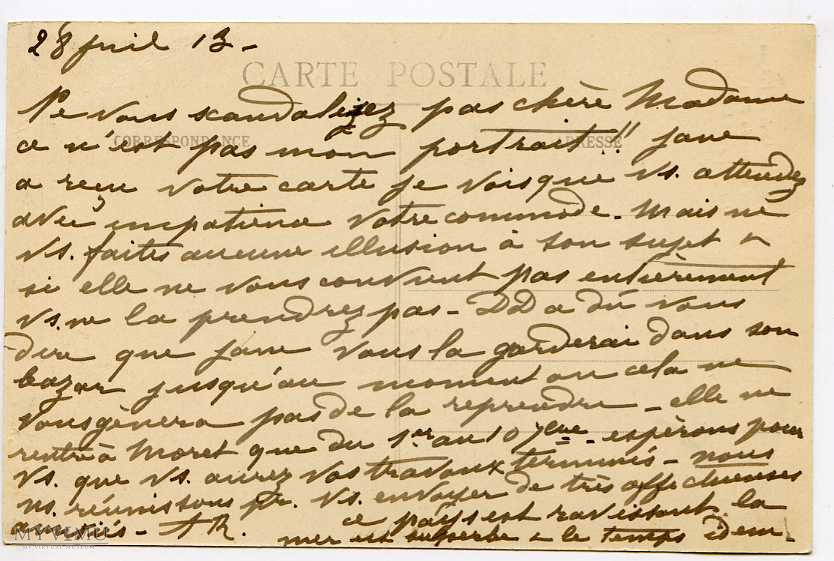 28 Juil 13 -
CARTE POSTALE
Ne vous scandalizez pas chère Madame
CORRESPONDANCE
ADRESSE
ce n'est pas mon portrait!! Jane
a reçu votre carte je vois que vs. attendez
avec impatience votre commode - Mais ne
vs. faites aucune illusion à son sujet &
si elle ne vous convient pas entièrement
vs. ne la prendrez pas - DD a dû vous
dire que Jane vous la garderai dans son
bazar jusqu'au moment ou cela ne
vous gènera pas de la reprendre - elle ne
rentre à Moret que du 1er au 10 7bre - espérons pour
vs. que vs. aurez vos travaux terminés - nous
ns. réunissons pr. vs. envoyer de très affectueuses
amitiés - AR. ce pays est ravissant. la
mer est superbe & le temps idem -
MYVIMU